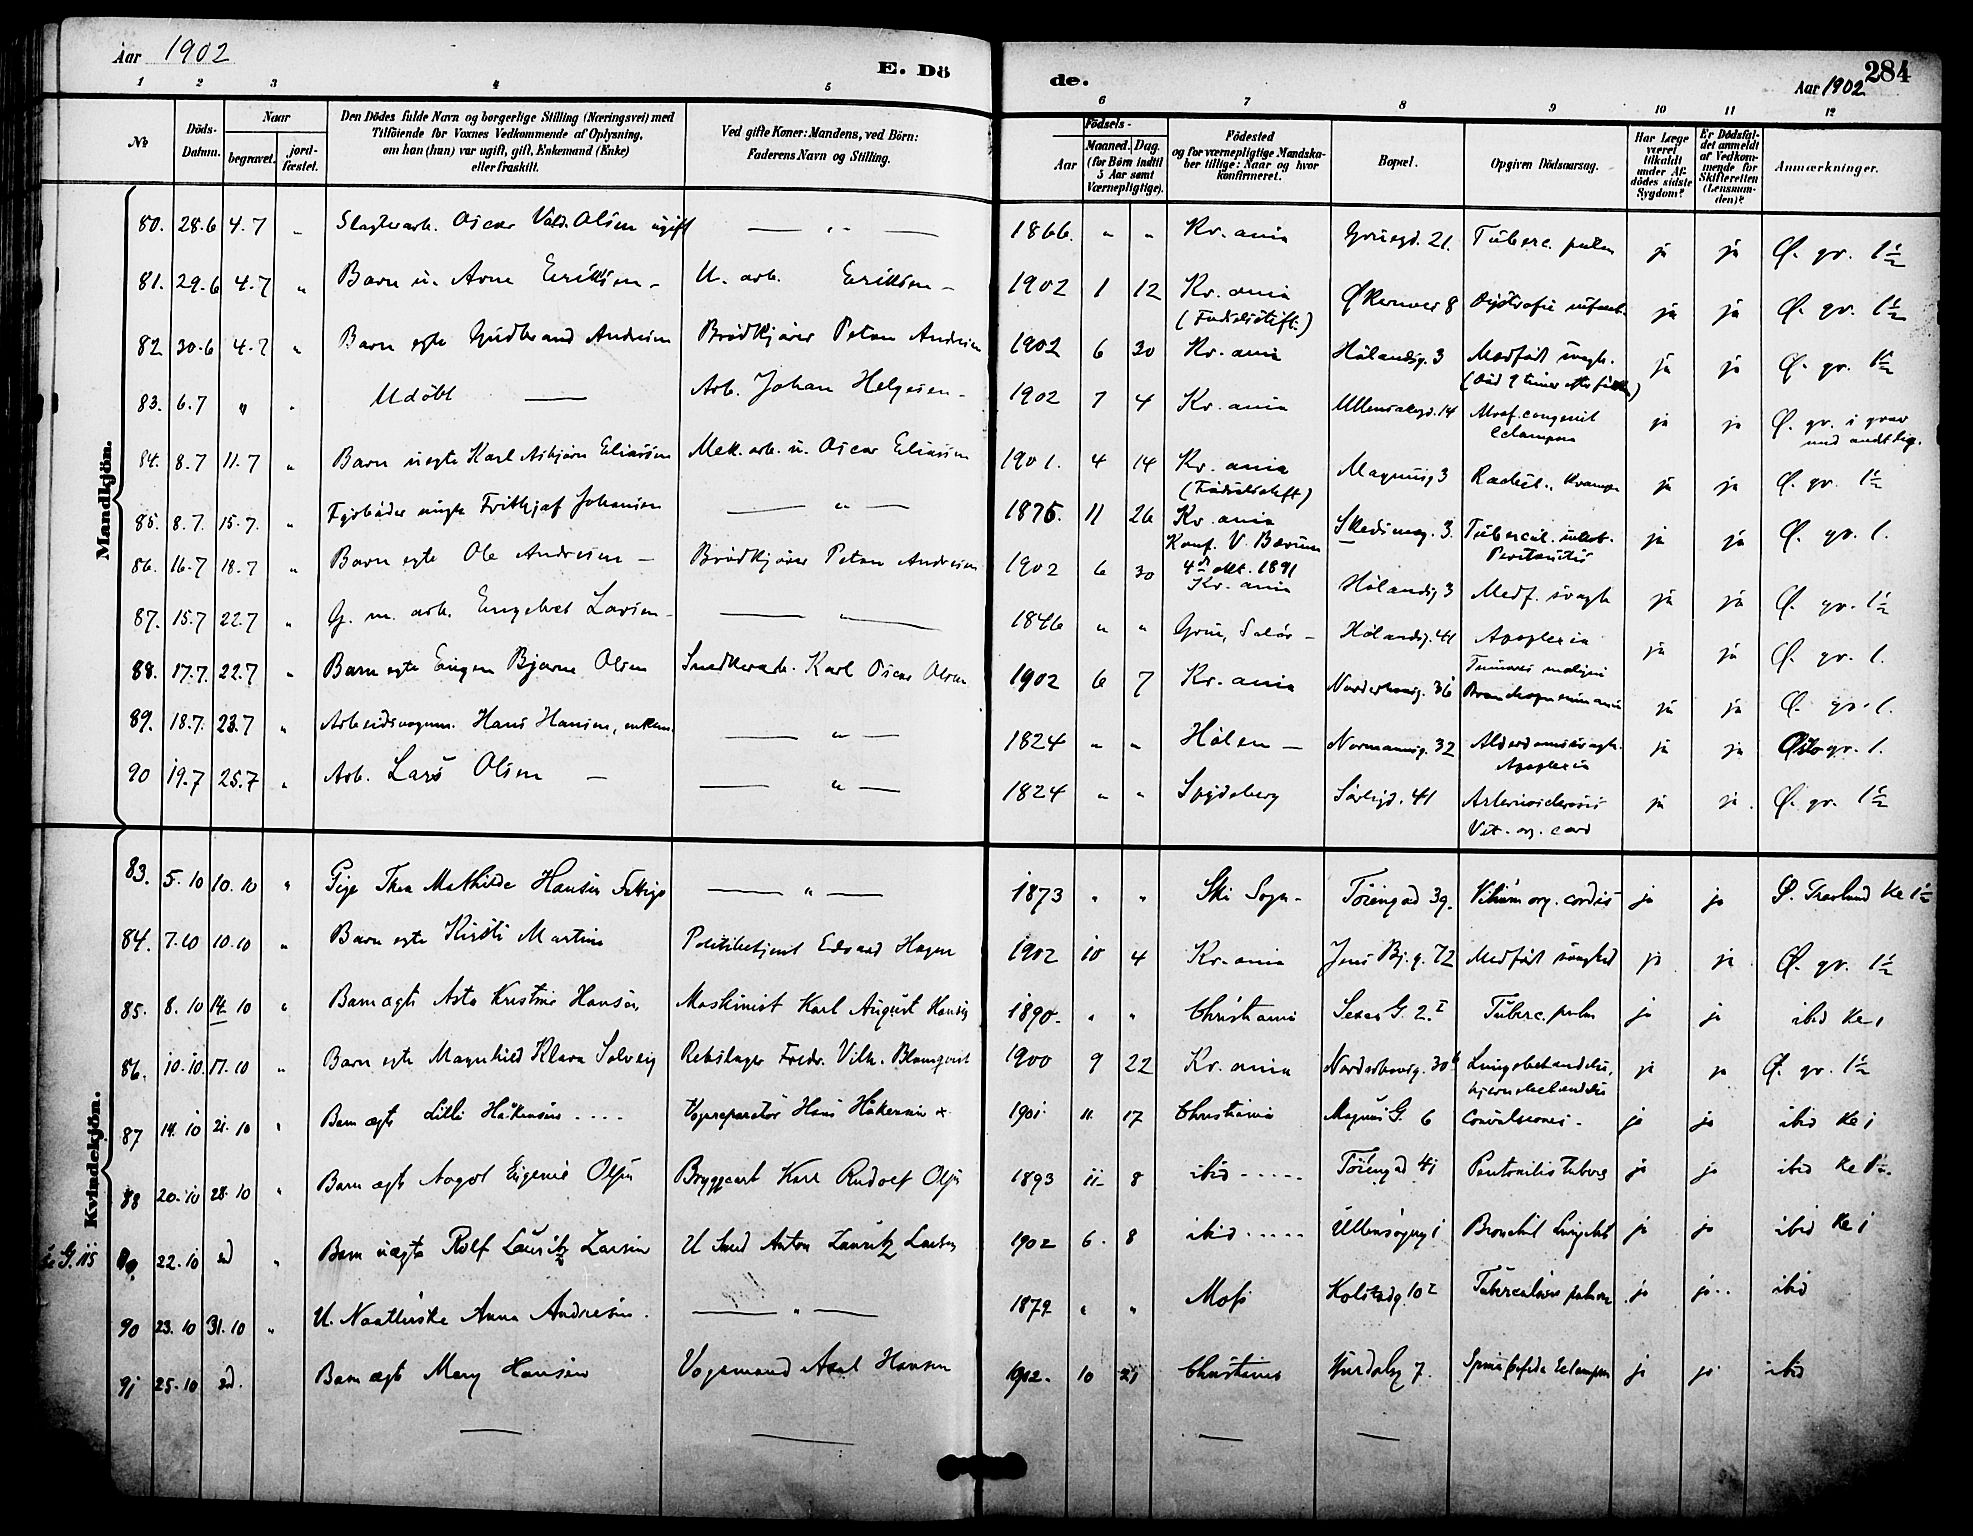 Aar 1902
E. Dö
de.
284
Aar 1902
1 2 3 4 5 6 7 8 9 10 11 12
No
Döds-Datum.
Naar
begravet.
jord-fæstet.
Den Dödes fulde Navn og borgerlige Stilling (Næringsvei) med
Tilföiende for Voxnes Vedkommende af Oplysning,
om han (hun) var ugift, gift, Enkemand (Enke)
eller fraskilt.
Ved gifte Koner: Mandens, ved Börn:
Faderens Navn og Stilling.
Födsels-
Aar
Maaned. Dag.
(for Börn indtil
5 Aar samt
Værnepligtige).
Födested
og for værnepligtige Mandska-
ber tillige: Naar og hvor
konfirmeret.
Bopæl.
Opgiven Dödsaarsag.
Har Læge
været
tilkaldt
under Af-
dödes sidste
Sygdom?
Er Dödsfal-
det anmeldt
af Vedkom-
mende for
Skifteretten
(Lensman-
den)?
Anmærkninger.
Mandkjön.
80. 28.6 4.7 " Slagterarb. Oscar Vald. Olsen ugift — " — 1866. " " Kr.ania Gruegd. 21. Tuberc. pulm ja ja Ø. gr. 1½
81. 29.6 4.7 " Barn u. Arne Eriksen - U. arb. Eriksen - 1902 1 12 Kr.ania Økernvei 8 ja ja Ø. gr. 1½
(Fødselsstift.)
82 30.6 4.7 " Barn egte Gudbrand Andresen Brödkjører Petan Andresen 1902 6 30 Kr.ania Hølandsg. 3 Medfødt svagh. ja ja Ø. gr. 1½
83. 6.7 " " Udøbt — Arb. Johan Helgesen - 1902 7 4 Kr.ania Ullensakergd. 14 Eclampsia ja ja Ø. gr. i grav
84. 8.7 11.7 " Barn uegte Karl Asbjørn Eliassen Mek. arb. u. Oscar Eliassen 1901. 4 14 Kr.ania Magnusg. 3 Rachit., Krampe ja ja Ø. gr. 1½
(Fødselsstift)
85. 8.7. 15.7. " Fyrbøder ungk Frithjof Johansen — " — 1875. 11 26 Kr.ania Skedsmog. 3. Tubercul. ja ja Ø. gr. 1.
Konf. V. Bærum
4de okt. 1891
Peritonitis
86. 16.7 18.7 " Barn egte Ole Andresen — Brödkjører Petan Andresen 1902 6 30 Kr.ania Hølandsg. 3 Medf. svagh ja ja Ø. gr. 1½
87. 15.7 22.7 " G. m. arb. Engebret Larsen - — " — 1846 " " Grue, Solør - Hølandsg. 41 Apoplexia ja ja Ø. gr. 1.
88. 17.7. 22.7 " Barn egte Eugen Bjarne Olsen Snedkerarb. Karl Oscar Olsen 1902 6 7 Kr.ania Norderhovsg. 36 Bronchopneumonia ja ja Ø. gr. 1.
89. 18.7. 23.7 " Arbeidsvognm. Hans Hansen, enkem. — " — 1824 " " Hølen — Normannsg. 32 Alderdomssvagh. ja ja Oslo gr. 1.
Apoplexia
90 19.7 25.7 " Arb. Lars Olsen — — " — 1824 " " Spydeberg Sørligd. 41 Arteriosclerosis ja ja. Ø. gr. 1½
Vit. org. cord
Kvindekjön.
83. 5.10 10.10 " Pige Thea Mathilde Hansen — " — 1873 " " Ski Sogn - Tøiengad 39. Vitium org. cordis ja ja
84. 7.10 10.10 " Barn egte Kirsti Martine Politibetjent Edvard Hagen 1902 10 4 Kr.ania Jens Bj. g. 72 Medfødt svaghed ja ja Ø. gr. 1½
85. 8.10 14.10 " Barn ægte Asta Kristine Hansen Maskinist Karl August Hansen 1890. " " Christiania Sexes G. 2.I Tuberc. pulm ja ja ibid Kl 1
86. 10.10. 17.10 " Barn egte Magnhild Klara Solveig Rebslager Fredr. Vilh. Blomqvist 1900 9 22 Kr.ania Norderhovsg. 30b Lungebetændelse, ja ja Ø. gr. 1½
hjernebetændelse
87 14.10 21.10 " Barn ægte Lilli Håkensen .... Hans Håkensen 1901. 11. 17 Christiania Magnus G. 6 Convulsiones. ja ja ibid Kl 1
88 20.10 28.10 " Barn ægte Aagot Eugenie Olsen Bryggearb Karl Rudolf Olsen 1893 11 8 ibid ----- Tøiengad 41 ja ja ibid Kl 1½.
se G. 115 89. 22.10 ed " Barn uægte Rolf Lauritz Larsen U Smed Anton Lauritz Larsen 1902 6. 8 ibid ..... Ullensagerg 1 ja ja ibid Kl 1
90 23.10 31.10 " U. Naatlerske Anna Andresen. — " — 1879 " " Moss Kolstadg. 10 I Tuberculosis pulmon ja ja.. ibid
91 25.10 ed. Barn ægte Mary Hansen Vognmand Axel Hansen 1902. 10 21 Christiania Hurdalsg 7. Spina bifida Eclampsi ja ja ibid